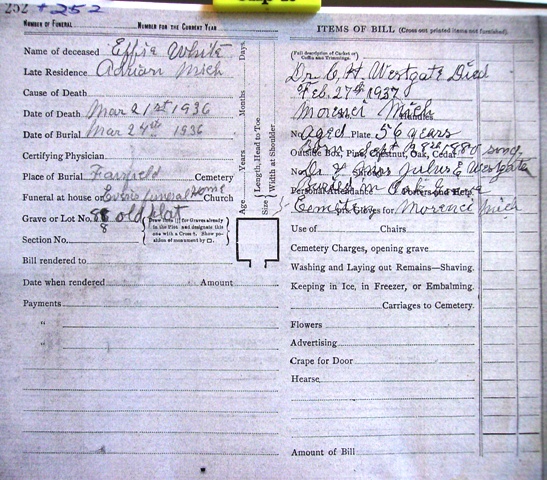 252 + 252
NUMBER OF FUNERAL NUMBER FOR THE CURRENT YEAR
Name of deceased Effie White
Late Residence Adrian Mich
Cause of Death
Date of Death Mar 21st 1936
Date of Burial Mar 24th 1936
Certifying Physician
Place of Burial Fairfield Cemetery
Funeral at house or funeral home Church
Grave or Lot No. 88 old plat
8
Section No.
Bill rendered to
Date when rendered Amount
Payments
"
"
Age Years Months Days
Size Length, Head to Toe
Width at Shoulder
ITEMS OF BILL (Cross out printed items not furnished).
(Full description of Casket or Coffin and Trimmings.)
Dr. C. H. Westgate Died
Feb. 27th 1937
Morenci Mich Handles
No Aged Plate 56 years
Outside Box, Pine, Chestnut, Oak, Cedar
Born Sept 28th 1880
No Julius E Westgate
Buried in
Cemetery Graves for Morenci Mich
Use of Chairs
Cemetery Charges, opening grave
Washing and Laying out Remains—Shaving.
Keeping in Ice, in Freezer, or Embalming.
Carriages to Cemetery.
Flowers
Advertising
Crape for Door
Hearse
Amount of Bill